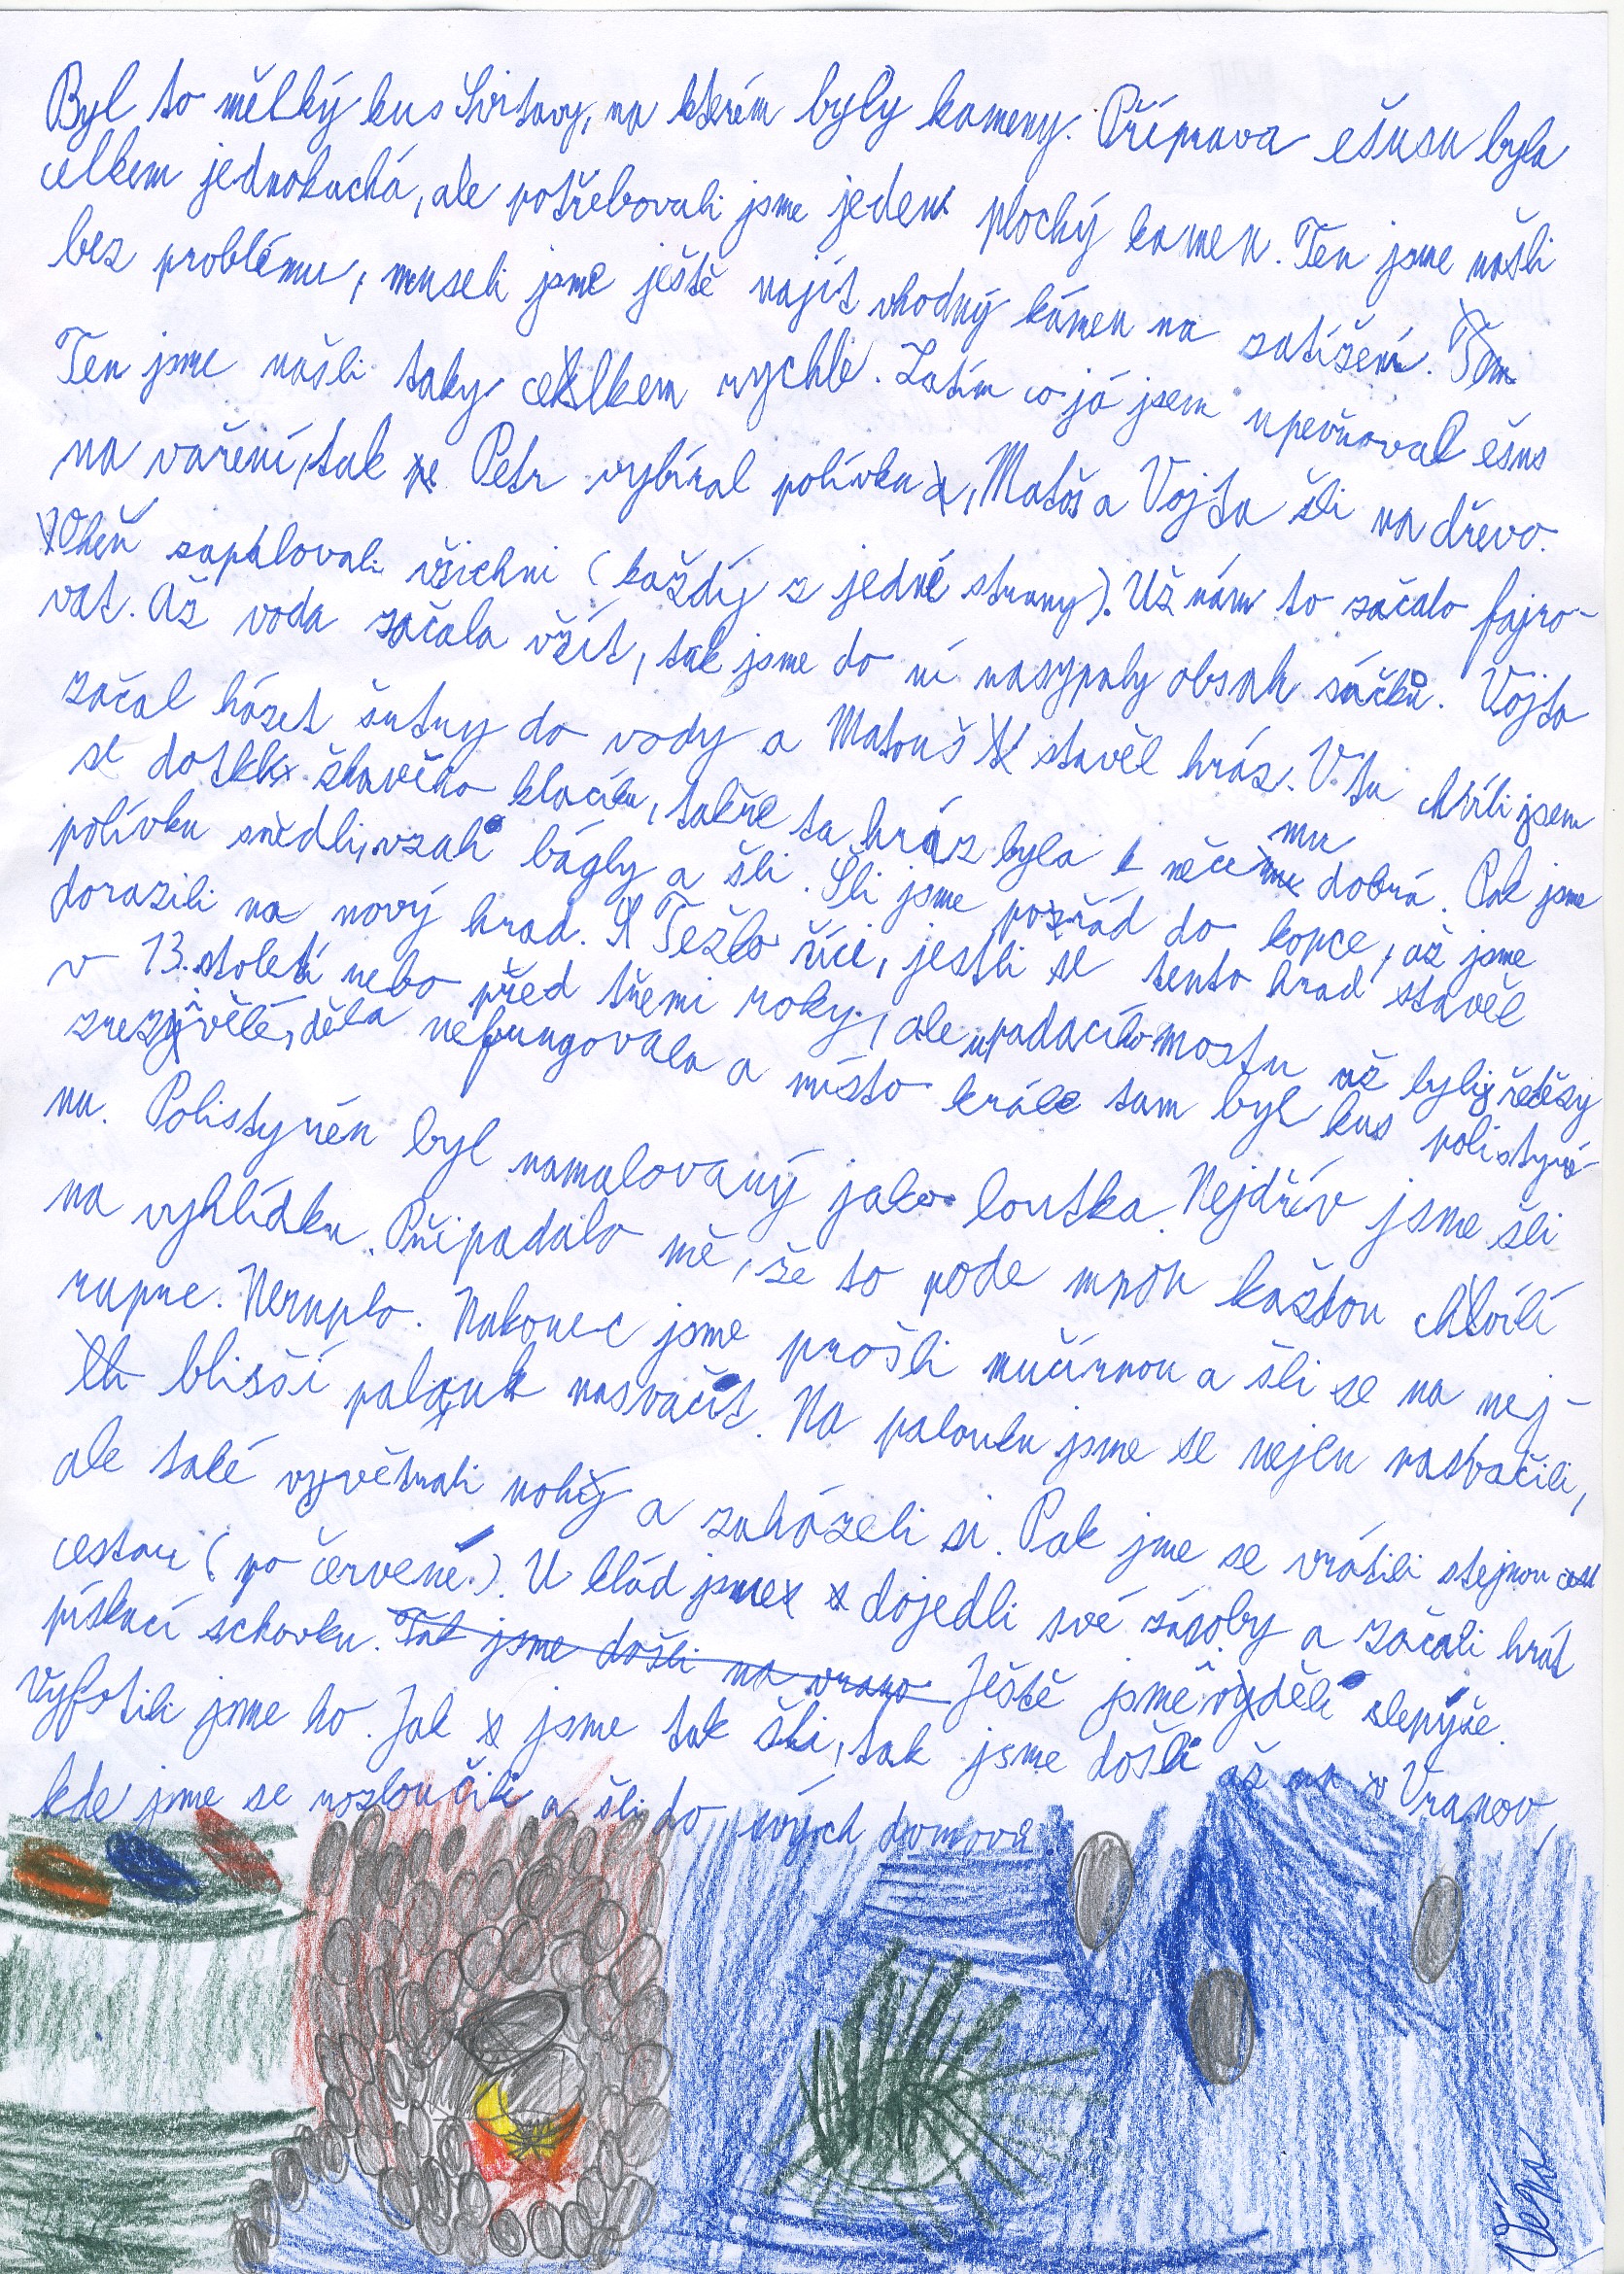 Byl to mělký kus Svitavy, na kterém byly kameny. Příprava ešusu byla
celkem jednoduchá, ale potřebovali jsme jeden plochý kamen. Ten jsme našli
bez problému, museli jsme ještě najít vhodný kámen na zatížení.
Ten jsme našli taky celkem rychle. Zatím co já jsem upevňoval ešus
na vaření, tak Petr vybíral polívku, Matoš a Vojta šli na dřevo.
Oheň zapalovali všichni (každý z jedné strany). Už nám to začalo fajro-
vat. Až voda začala vžít, tak jsme do ní nasypaly obsah sáčků. Vojta
začal házet šutry do vody a Matouš stavěl hráz. V tu chvíli jsem
se dotkl žhavého klacíku, takže ta hráz byla k něčemu dobrá. Pak jsme
polívku snědli, vzali bágly a šli. Šli jsme pořád do kopce, až jsme
dorazili na nový hrad. Težko říci, jestli se tento hrad stavěl
v 13. století nebo před třemi roky, ale u padacího mostu už byly řetězy
zrezivělé, děla nefungovala a místo krále tam byl kus polistyré-
nu. Polistyrén byl namalovaný jako loutka. Nejdřív jsme šli
na vyhlídku. Připadalo mě, že to pode mnou každou chvílí
rupne. Neruplo. Nakonec jsme prošli mučírnou a šli se na nej-
blišší palouk nasvačit. Na palouku jsme se nejen nasvačili,
ale také vyvětrali nohy a zaházeli si. Pak jme se vrátili stejnou cest
cestou (po červené.) U klád jsme dojedli své zásoby a začali hrát
pískací schovku. Tak jsme došli na vrano Ještě jsme viděli slepýše.
Vyfotili jsme ho. Jak jsme tak šli, tak jsme došli až na Vranov,
kde jsme se rozloučili a šli do svých domovů.
Věna